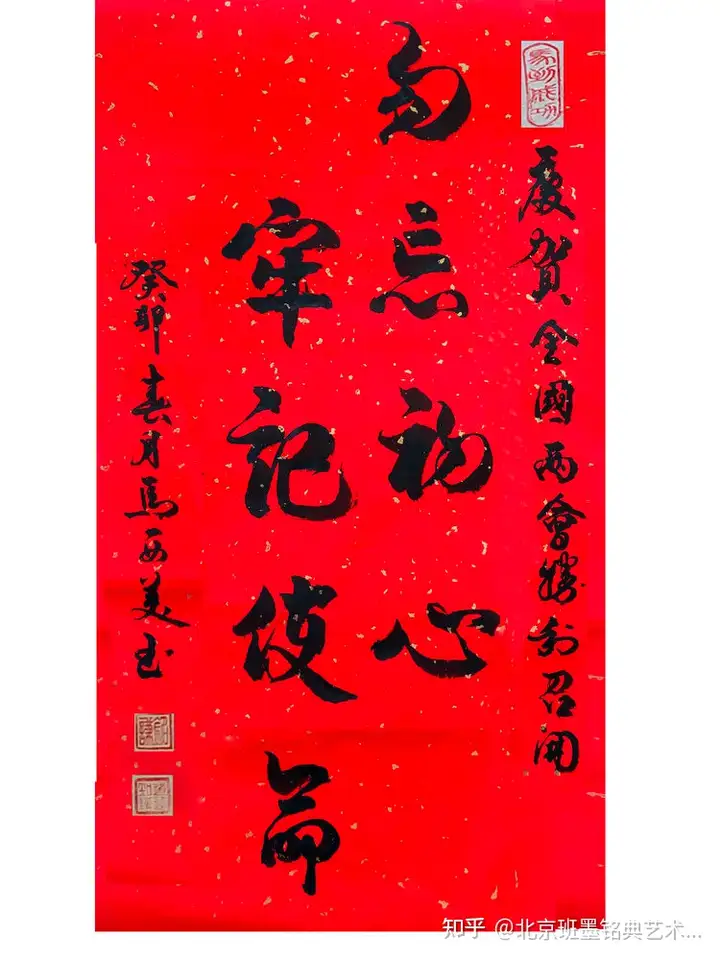 馬到成功
慶賀全國两會勝利召開
勿忘初心
牢記使命
癸卯春月馬西美书
知乎 @北京班墨铭典艺术...